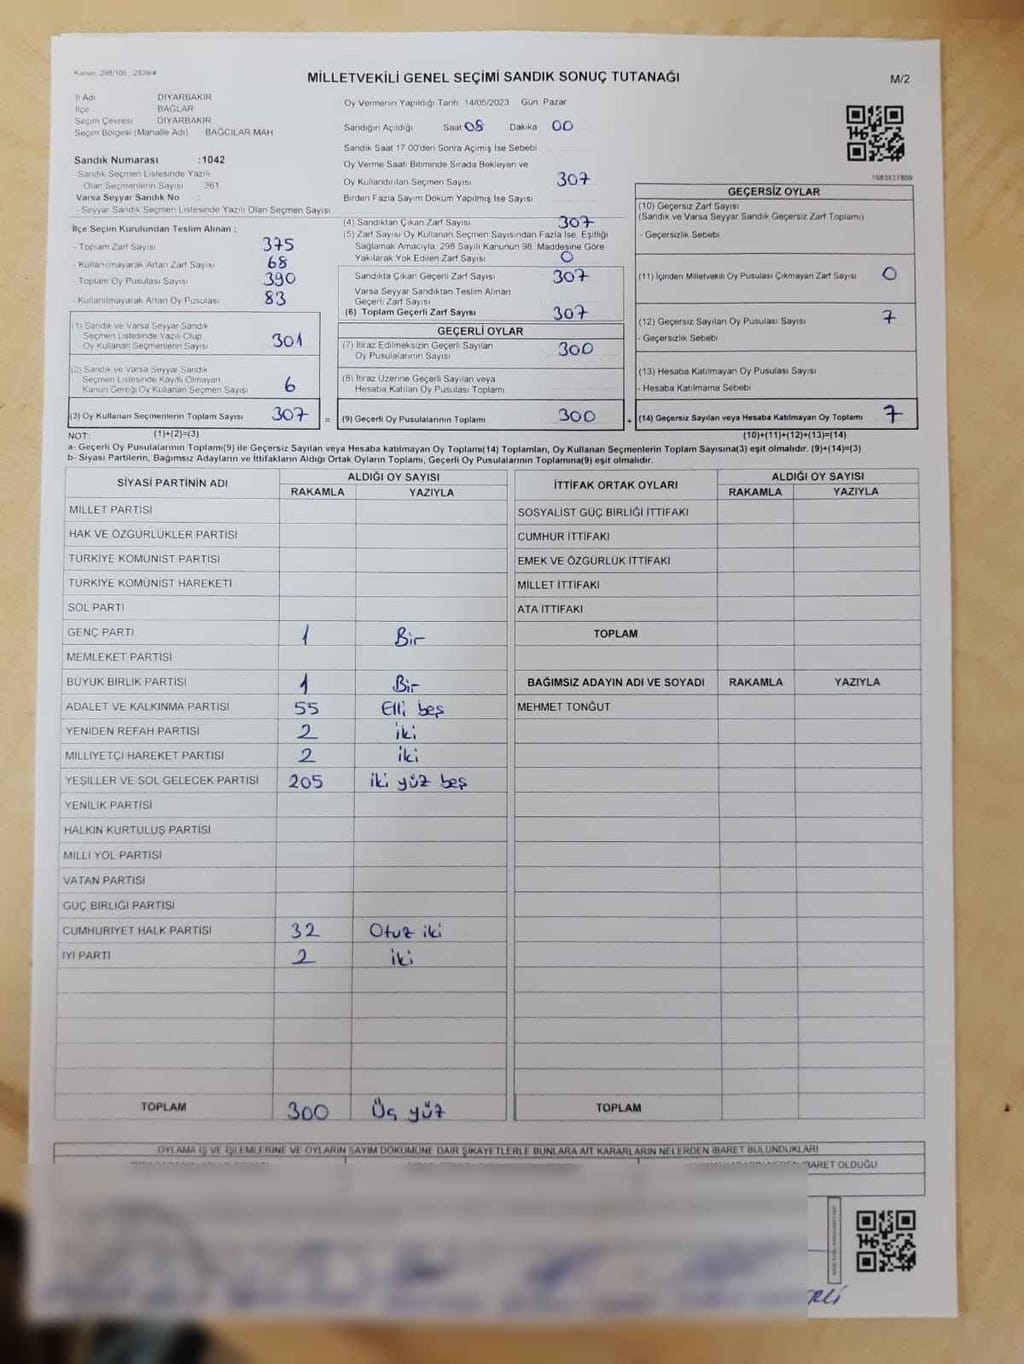 Kanun: 298/105 2839/4
MİLLETVEKİLİ GENEL SEÇİMİ SANDIK SONUÇ TUTANAĞI
M/2
İl Adı DİYARBAKIR
İlçe BAĞLAR
Seçim Çevresi DİYARBAKIR
Seçim Bölgesi (Mahalle Adı) BAĞCILAR MAH
Sandık Numarası :1042
- Sandık Seçmen Listesinde Yazılı
Olan Seçmenlerin Sayısı 361
Varsa Seyyar Sandık No
- Seyyar Sandık Seçmen Listesinde Yazılı Olan Seçmen Sayısı
İlçe Seçim Kurulundan Teslim Alınan ;
- Toplam Zarf Sayısı 375
- Kullanılmayarak Artan Zarf Sayısı 68
- Toplam Oy Pusulası Sayısı 390
- Kullanılmayarak Artan Oy Pusulası 83
(1) Sandık ve Varsa Seyyar Sandık
Seçmen Listesinde Yazılı Olup
Oy Kullanan Seçmenlerin Sayısı 301
(2) Sandık ve Varsa Seyyar Sandık
Seçmen Listesinde Kayıtlı Olmayan
Kanun Gereği Oy Kullanan Seçmen Sayısı 6
(3) Oy Kullanan Seçmenlerin Toplam Sayısı 307
Oy Vermenin Yapıldığı Tarih 14/05/2023 Gün: Pazar
Sandığın Açıldığı Saat 08 Dakika 00
Sandık Saat 17.00'den Sonra Açımış İse Sebebi
Oy Verme Saati Bitiminde Sırada Bekleyen ve
Oy Kullandırılan Seçmen Sayısı 307
Birden Fazla Sayım Döküm Yapılmış İse Sayısı
(4) Sandıktan Çıkan Zarf Sayısı 307
(5) Zarf Sayısı Oy Kullanan Seçmen Sayısından Fazla İse, Eşitliği
Sağlamak Amacıyla, 298 Sayılı Kanunun 98. Maddesine Göre
Yakılarak Yok Edilen Zarf Sayısı 0
Sandıkta Çıkan Geçerli Zarf Sayısı 307
Varsa Seyyar Sandıktan Teslim Alınan
Geçerli Zarf Sayısı
(6) Toplam Geçerli Zarf Sayısı 307
GEÇERLİ OYLAR
(7) İtiraz Edilmeksizin Geçerli Sayılan
Oy Pusulalarının Sayısı 300
(8) İtiraz Üzerine Geçerli Sayılan veya
Hesaba Katılan Oy Pusulası Toplamı
= (9) Geçerli Oy Pusulalarının Toplamı 300
1983837809
GEÇERSİZ OYLAR
(10) Geçersiz Zarf Sayısı
(Sandık ve Varsa Seyyar Sandık Geçersiz Zarf Toplamı)
- Geçersizlik Sebebi
(11) İçinden Milletvekili Oy Pusulası Çıkmayan Zarf Sayısı 0
(12) Geçersiz Sayılan Oy Pusulası Sayısı 7
- Geçersizlik Sebebi
(13) Hesaba Katılmayan Oy Pusulası Sayısı
- Hesaba Katılmama Sebebi
+ (14) Geçersiz Sayılan veya Hesaba Katılmayan Oy Toplamı 7
NOT: (1)+(2)=(3)
(10)+(11)+(12)+(13)=(14)
a- Geçerli Oy Pusulalarının Toplamı(9) ile Geçersiz Sayılan veya Hesaba katılmayan Oy Toplamı(14) Toplamları, Oy Kullanan Seçmenlerin Toplam Sayısına(3) eşit olmalıdır. (9)+(14)=(3)
b- Siyasi Partilerin, Bağımsız Adayların ve İttifakların Aldığı Ortak Oyların Toplamı, Geçerli Oy Pusulalarının Toplamına(9) eşit olmalıdır.
SİYASİ PARTİNİN ADI ALDIĞI OY SAYISI
RAKAMLA YAZIYLA
MİLLET PARTİSİ
HAK VE ÖZGÜRLÜKLER PARTİSİ
TÜRKİYE KOMÜNİST PARTİSİ
TÜRKİYE KOMÜNİST HAREKETİ
SOL PARTİ
GENÇ PARTİ 1 Bir
MEMLEKET PARTİSİ
BÜYÜK BİRLİK PARTİSİ 1 Bir
ADALET VE KALKINMA PARTİSİ 55 Elli beş
YENİDEN REFAH PARTİSİ 2 iki
MİLLİYETÇİ HAREKET PARTİSİ 2 iki
YEŞİLLER VE SOL GELECEK PARTİSİ 205 iki yüz beş
YENİLİK PARTİSİ
HALKIN KURTULUŞ PARTİSİ
MİLLİ YOL PARTİSİ
VATAN PARTİSİ
GÜÇ BİRLİĞİ PARTİSİ
CUMHURİYET HALK PARTİSİ 32 Otuz iki
İYİ PARTİ 2 iki
TOPLAM 300 Üç yüz
İTTİFAK ORTAK OYLARI ALDIĞI OY SAYISI
RAKAMLA YAZIYLA
SOSYALİST GÜÇ BİRLİĞİ İTTİFAKI
CUMHUR İTTİFAKI
EMEK VE ÖZGÜRLÜK İTTİFAKI
MİLLET İTTİFAKI
ATA İTTİFAKI
TOPLAM
BAĞIMSIZ ADAYIN ADI VE SOYADI RAKAMLA YAZIYLA
MEHMET TONĞUT
TOPLAM
OYLAMA İŞ VE İŞLEMLERİNE VE OYLARIN SAYIM DÖKÜMÜNE DAİR ŞİKAYETLERLE BUNLARA AİT KARARLARIN NELERDEN İBARET BULUNDUKLARI
İBARET OLDUĞU